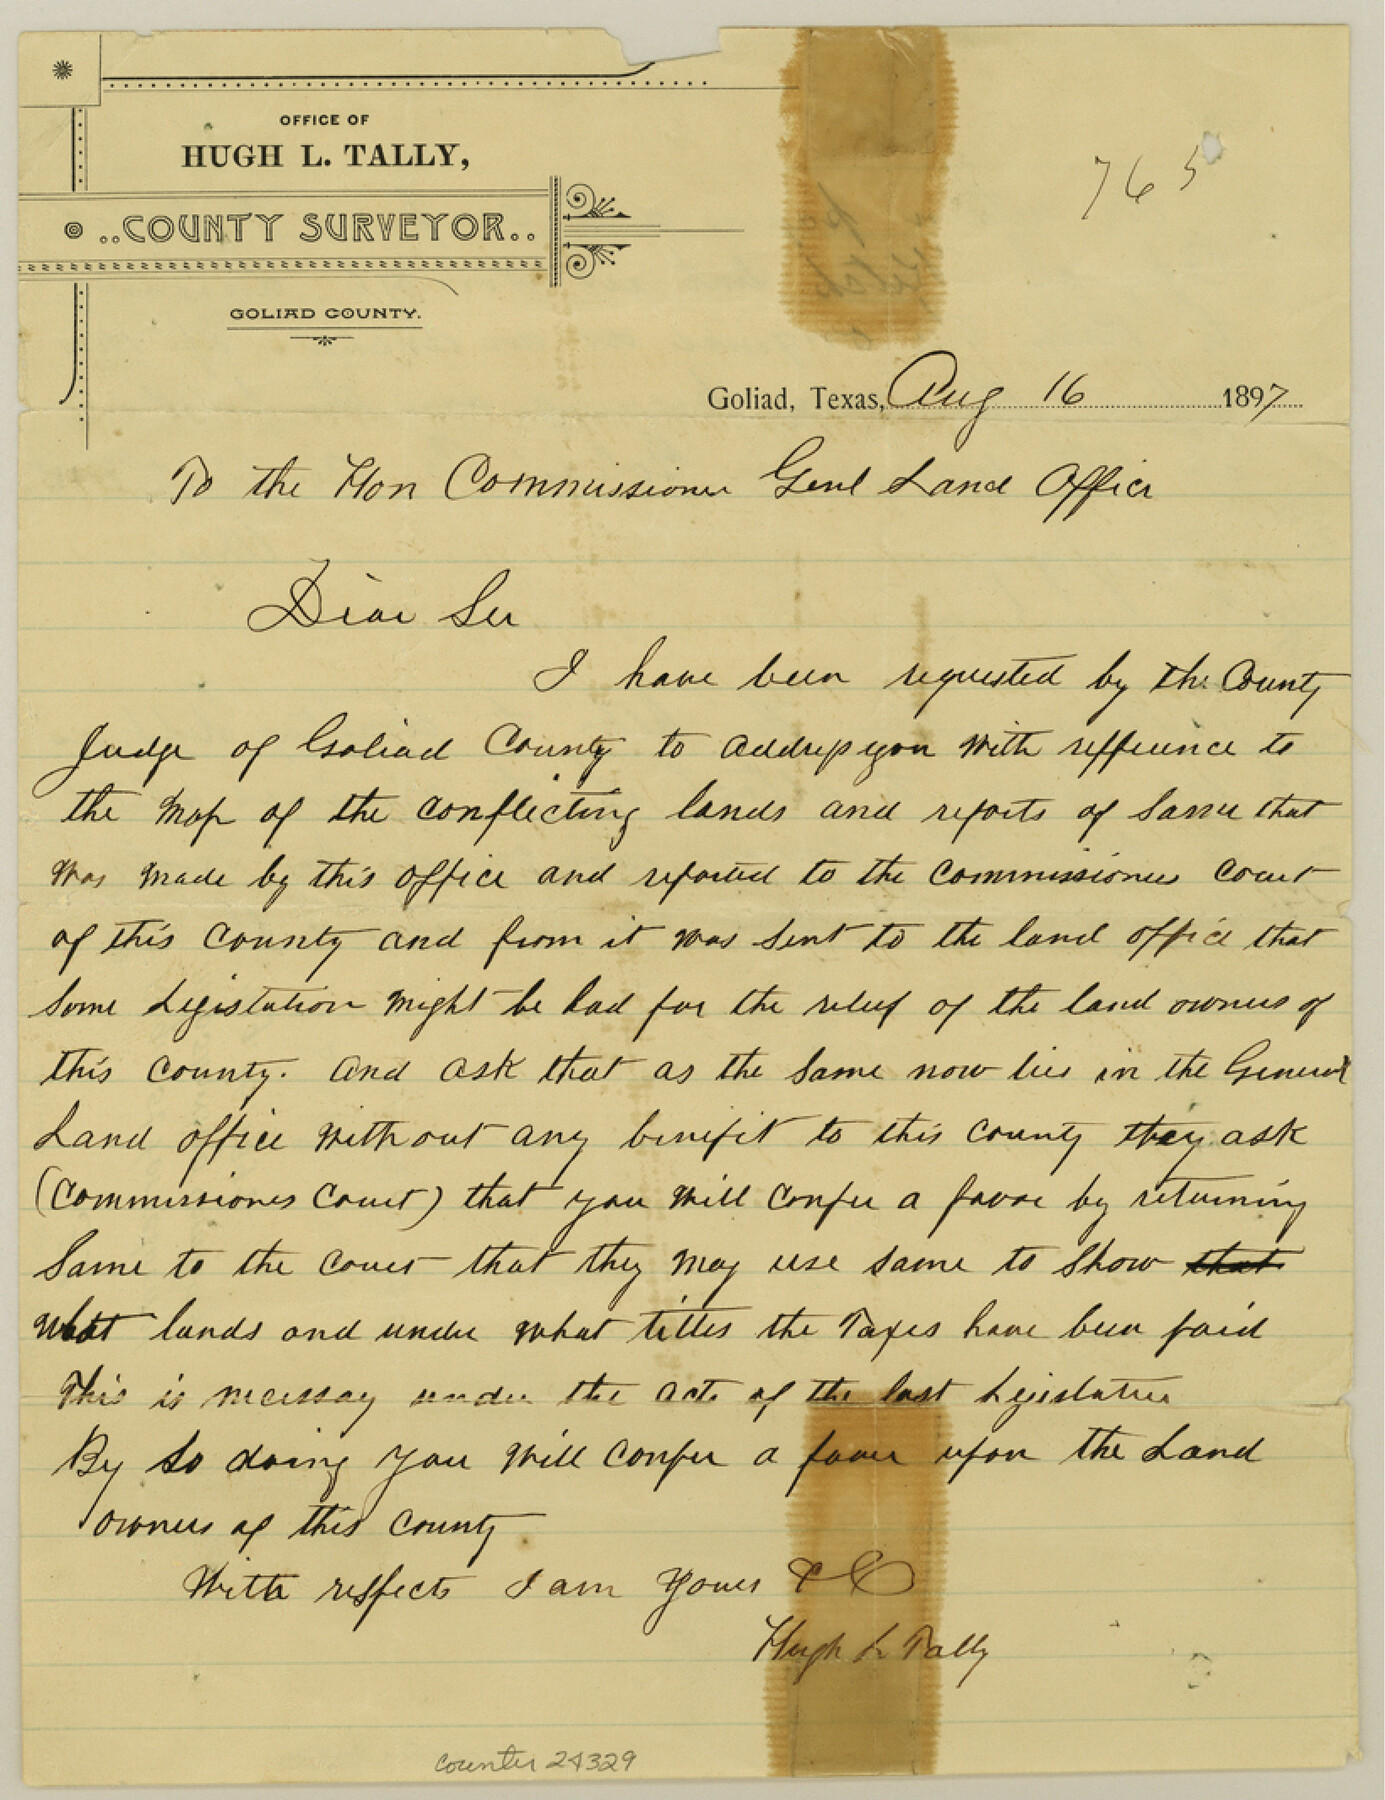 OFFICE OF
HUGH L. TALLY,
..COUNTY SURVEYOR..
GOLIAD COUNTY.
765
Goliad, Texas, Aug 16 1897
To the Hon Commissioner Genl Land Office
Dear Sir
I have been requested by the County
Judge of Goliad County to address you with refference to
the Map of the conflicting lands and reports of same that
was made by this office and reported to the Commissioners Court
of this county and from it was sent to the land office that
some Legislation might be had for the relief of the land owners of
this county. And ask that as the same now lies in the General
Land office without any benifit to this county they ask
(Commissioners Court) that you will confer a favor by returning
Same to the court that they may use same to show that
what lands and under what titles the Taxes have been paid
This is necessay under the acts of the last Legislature
By so doing you will confer a favor upon the Land
owners of this county
With respects I am Yours &C
Hugh L Tally
counter 24329